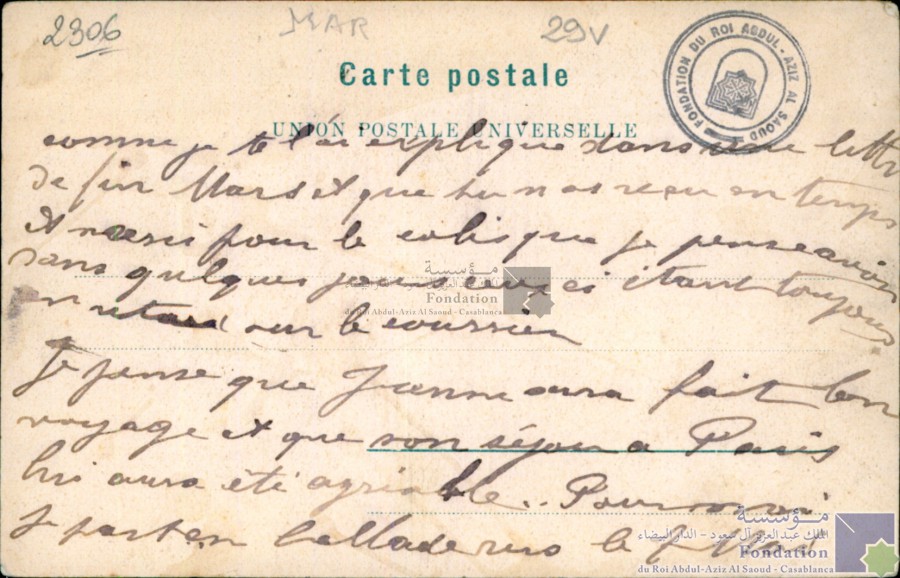 2306
MAR
29V
Carte postale
UNION POSTALE UNIVERSELLE
FONDATION DU ROI ABDUL-AZIZ AL SAOUD
comme je te l'ai expliqué dans une lettre
de fin Mars et que tu n as reçu en temps
et merci pour le colis que je pense avoir
dans quelques jours ceux ci étant toujours
en retard sur le courrier
Je pense que Jeanne aura fait bon
voyage et que son séjour a Paris
lui aura été agréable.. Pour moi
je pars en ballade vers le
مؤسسة
الملك عبد العزيز آل سعود - الدار البيضاء
Fondation
du Roi Abdul-Aziz Al Saoud - Casablanca
مؤسسة
الملك عبد العزيز آل سعود - الدار البيضاء
Fondation
du Roi Abdul-Aziz Al Saoud - Casablanca